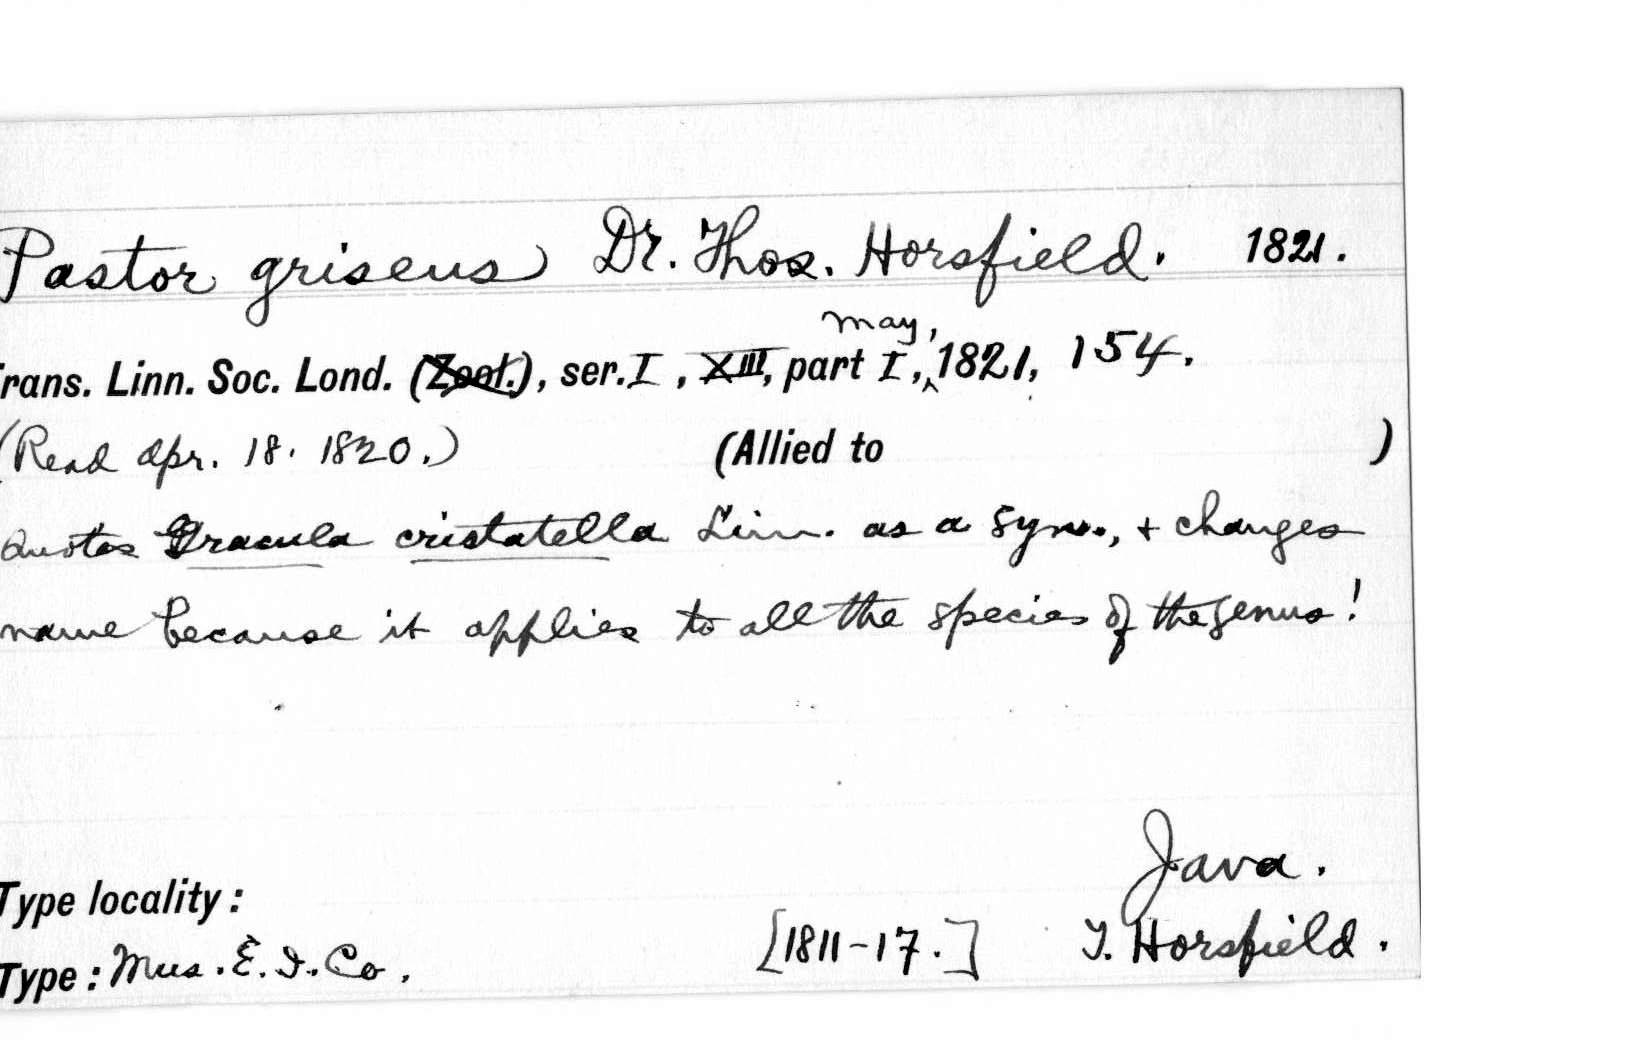 Pastor griseus Dr. Thos. Horsfield. 1821.
may,
rans. Linn. Soc. Lond. (Zool.), ser. I, XIII, part I, 1821, 154.
(Read Apr. 18. 1820.) (Allied to )
Quotes Gracula cristatella Linn. as a syn., + changes
name because it applies to all the species of the genus!
Java.
Type locality:
Type: Mus. E. I. Co. [1811-17.] T. Horsfield.